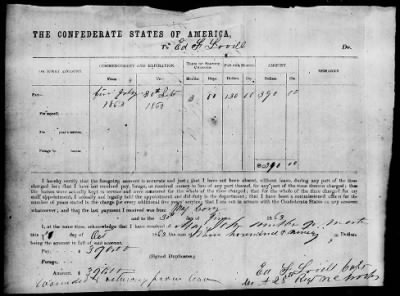 THE CONFEDERATE STATES OF AMERICA,
To Ed F. Lovill Dr.
ON WHAT ACCOUNT. COMMENCEMENT AND EXPIRATION. TERM OF SERVICE CHARGED. PAY PER MONTH. AMOUNT. REMARKS.
From To Months Days Dollars Cts. Dollars Cts.
Pay— 1 July 30 Sept 3 00 130 00 390 00
1863 1863
For myself
For years' service
Forage for
$390 00
I hereby certify that the foregoing account is accurate and just; that I have not been absent, without leave, during any part of the time
charged for; that I have not received pay, forage, or received money in lieu of any part thereof, for any part of the time therein charged; that
the horses were actually kept in service and were mustered for the whole of the time charged; that for the whole of the time charged for my
staff appointment, I actually and legally held the appointment and did duty in the department; that I have been a commissioned officer for
the number of years stated in the charge for every additional five years' service; that I am not in arrears with the Confederate States on any account
whatsoever; and that the last payment I received was from Maj Cary
and to the 30th of June 1863
I, at the same time, acknowledge that I have received of Maj John
this day of Oct 1863 the sum of Three hundred & ninety Dollars,
being the amount in full of said account.
Pay 390.00
Forage
(Signed Duplicates.)
Amount, $ 390.00
Wounded & returning from leave
Ed F Lovill Capt
Co A 28 Reg NC